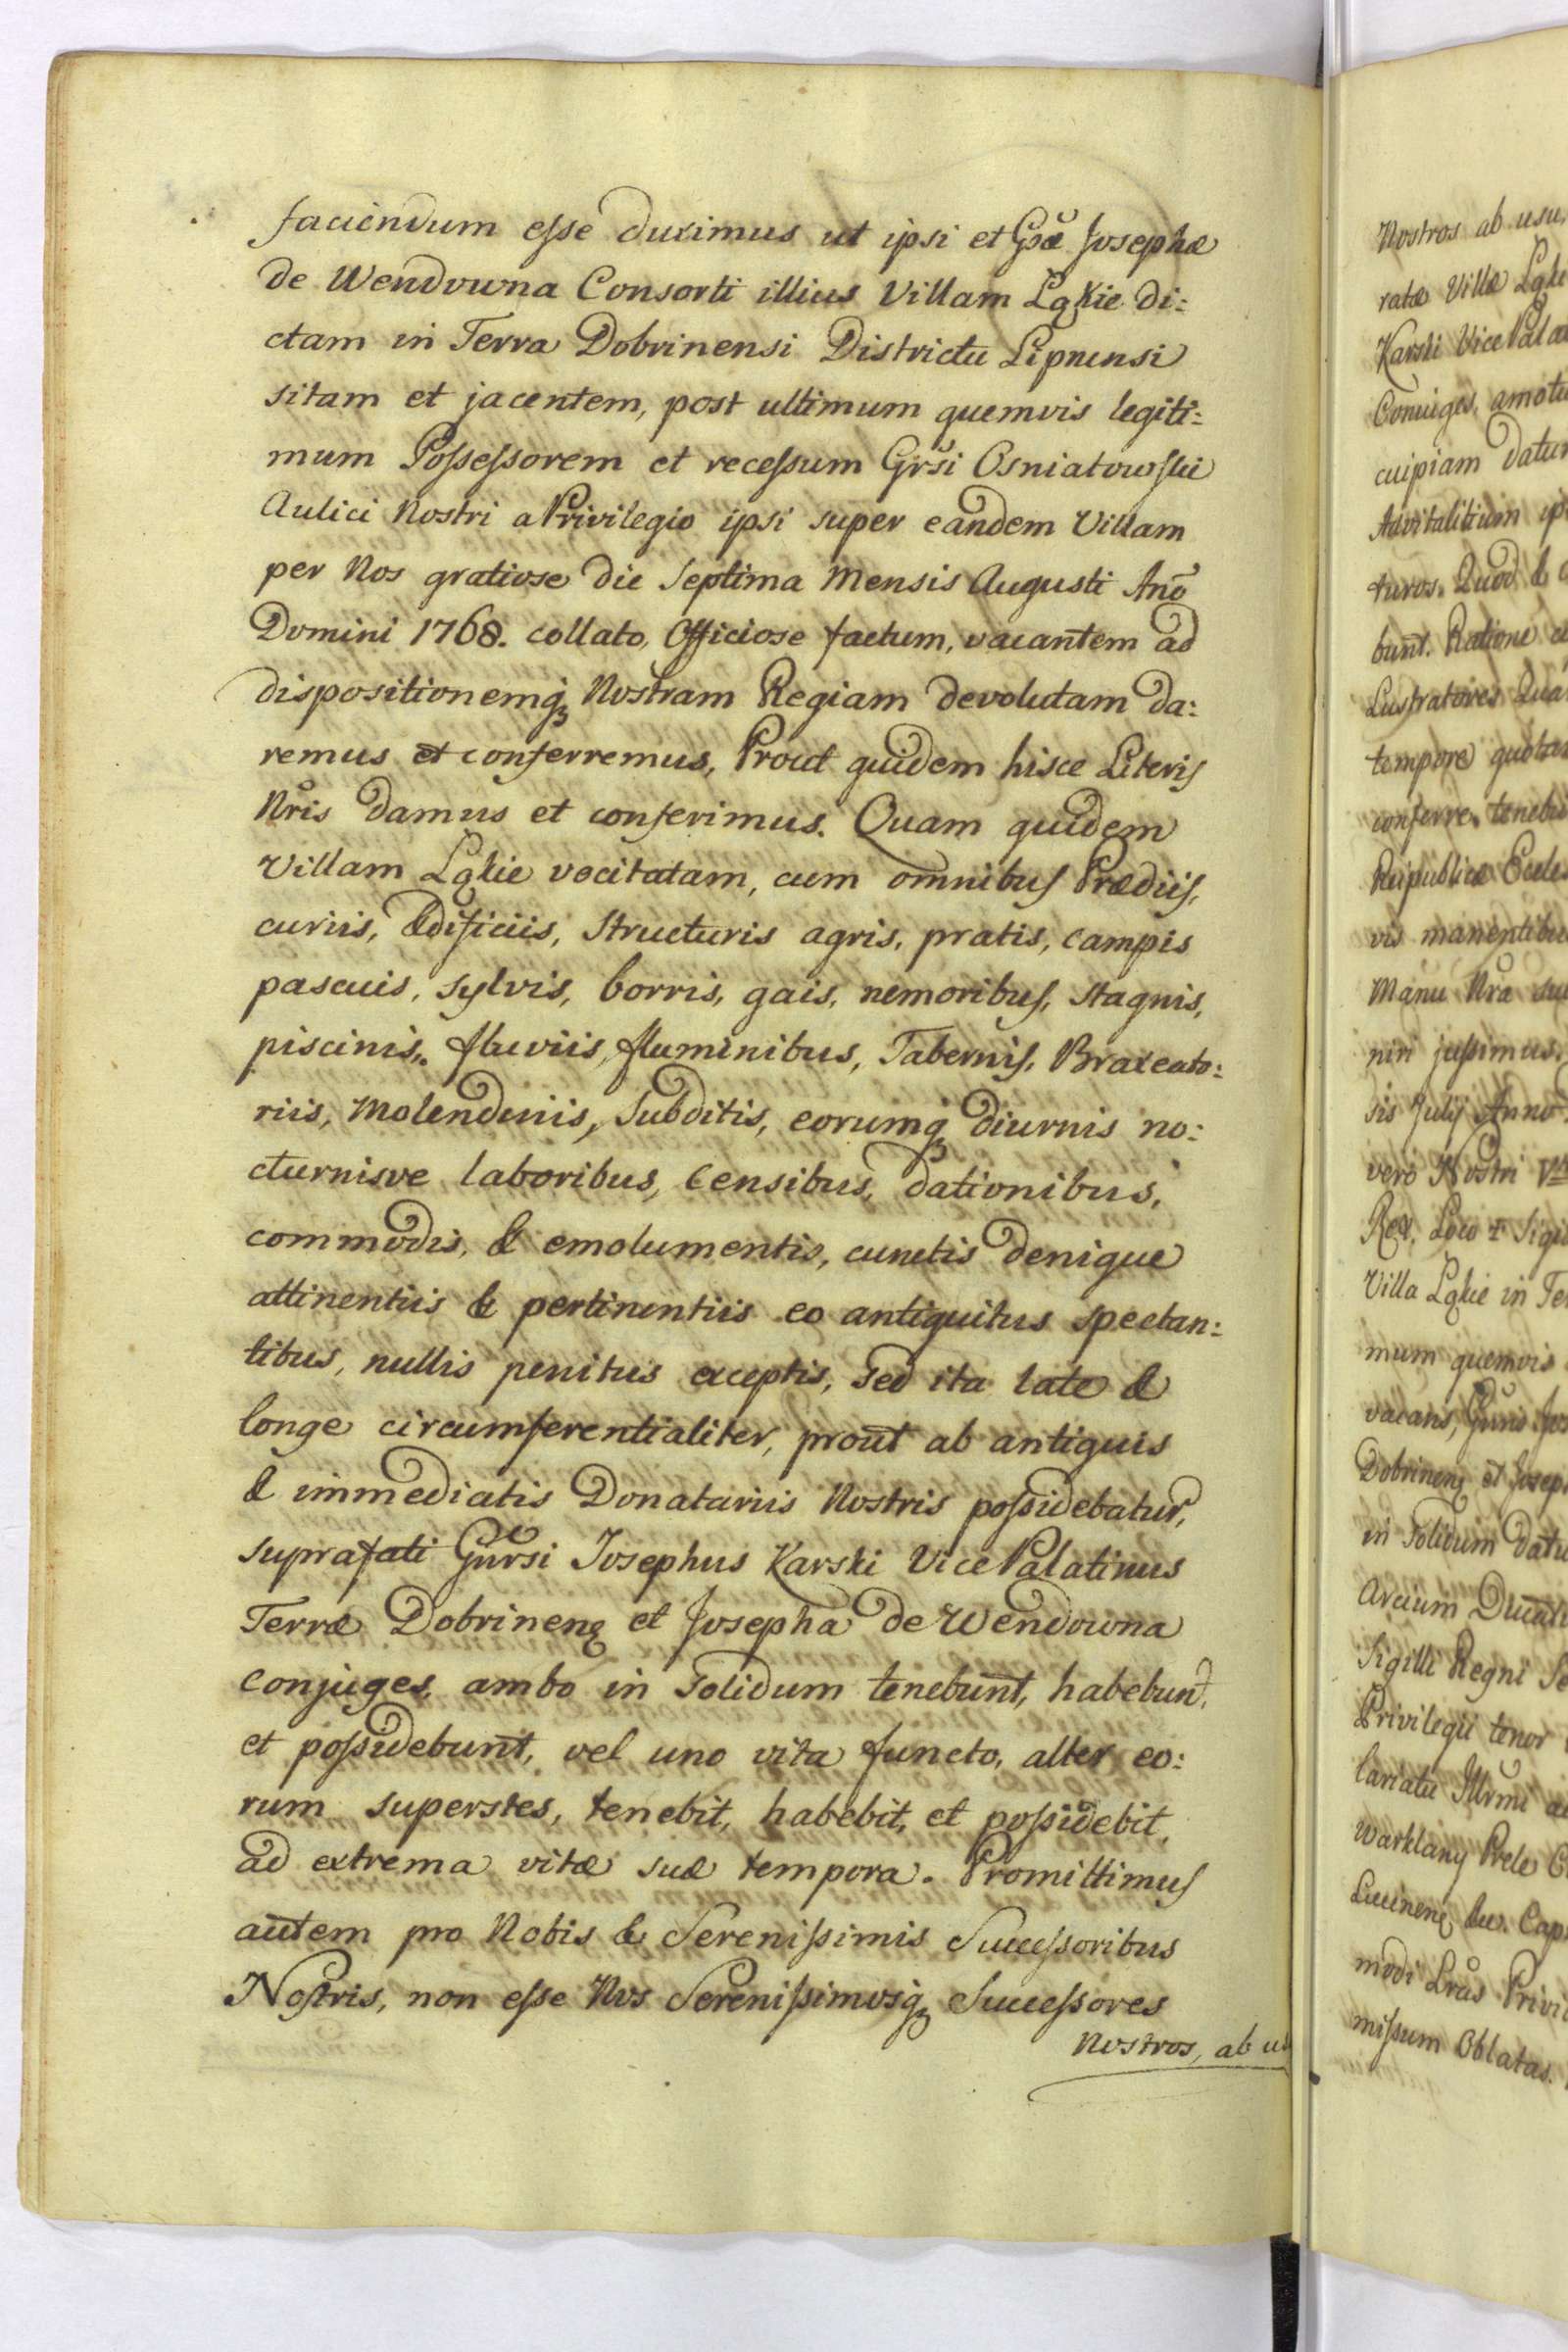 faciendum esse duximus ut ipsi et Gsæ Josephæ
de Wendowna Consorti illius Villam Łąkie di:
ctam in Terra Dobrinensi Districtu Lipnensi
sitam et jacentem, post ultimum quemvis legiti:
mum Possessorem et recessum Grsi Osniatowski
Aulici Nostri a Privilegio ipsi super eandem Villam
per Nos gratiose die Septima Mensis Augusti Ano
Domini 1768. collato, Officiose factum, vacantem ad
dispositionemq₃ Nostram Regiam devolutam da:
remus et conferremus, Prout quidem hisce Literis
Nris damus et conferimus. Quam quidem
Villam Łąkie vocitatam, cum omnibus Prædiis,
curiis, Ædificiis, Structuris agris, pratis, campis
pascuis, sylvis, borris, gais, nemoribus, stagnis,
piscinis, fluviis, fluminibus, Tabernis, Braxeato:
riis, Molendinis, Subditis, eorumq₃ diurnis no:
cturnisve laboribus, Censibus, dationibus,
commodis, & emolumentis, cunctis denique
attinentiis & pertinentiis eo antiquitus spectan:
tibus, nullis penitus exceptis, sed ita late &
longe circumferentialiter, prout ab antiquis
& immediatis Donatariis Nostris possidebatur,
suprafati Gnrsi Josephus Karski Vice Palatinus
Terræ Dobrinens et Josepha de Wendowna
Conjuges, ambo in solidum tenebunt, habebunt,
et possidebunt, vel uno vita functo, alter eo:
rum superstes, tenebit, habebit, et possidebit,
ad extrema vitæ suæ tempora. Promittimus
autem pro Nobis & Serenissimis Successoribus
Nostris, non esse Nos Serenissimosq₃ Successores
Nostros, ab us
Nostros ab usu,
ratæ Villæ Łąkie
Karski Vice Pala
Coniuges, amotu
cuipiam datur
Advitalitium ips
turos. Quod &
bunt. Ratione
Lustratores Qua
tempore quotan
conferre tenebu
Reipublicæ Eccles
vis manentibus
Manu Nra su
niri jussimus.
sis Julij Anno
vero Nostri
Rex. Loco Sigi
Villa Łąkie in Te
mum quemvis
vacans, Jos
Dobrinens et Josep
in solidum datu
arcium
Sigilli Regni Se
Privilegii tenor
lariatu Illrmi
Warklany
Cap
modi Lras Privi
missum Oblatas.